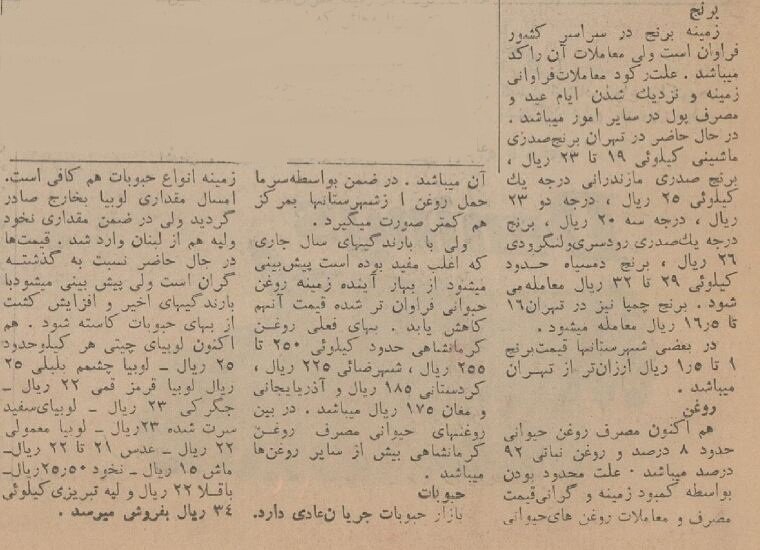 برنج
زمینه برنج در سراسر کشور
فراوان است ولی معاملات آن راکد
میباشد . علت رکود معاملات فراوانی
زمینه و نزدیك شدن ایام عید و
مصرف پول در سایر امور میباشد .
در حال حاضر در تهران برنج صدری
ماشینی کیلوئی ۱۹ تا ۲۳ ریال ،
برنج صدری مازندرانی درجه یك
کیلوئی ۲۵ ریال ، درجه دو ۲۳
ریال ، درجه سه ۲۰ ریال ، برنج
درجه یك صدری رودسری ولنگرودی
۲۶ ریال ، برنج دمسیاه حدود
کیلوئی ۲۹ تا ۳۲ ریال معامله می
شود . برنج چمپا نیز در تهران ۱۶
تا ۱۶٫۵ ریال معامله میشود .
در بعضی شهرستانها قیمت برنج
۱ تا ۱٫۵ ریال ارزانتر از تهران
میباشد .
روغن
هم اکنون مصرف روغن حیوانی
حدود ۸ درصد و روغن نباتی ۹۲
درصد میباشد . علت محدود بودن
بواسطه کمبود زمینه و گرانی قیمت
مصرف و معاملات روغن های حیوانی
آن میباشد . در ضمن بواسطه سرما
حمل روغن ا زشهرستانها بمرکز
هم کمتر صورت میگیرد .
ولی با بارندگیهای سال جاری
که اغلب مفید بوده است پیش بینی
میشود از بهار آینده زمینه روغن
حیوانی فراوان تر شده قیمت آنهم
کاهش یابد . بهای فعلی روغن
کرمانشاهی حدود کیلوئی ۲۵۰ تا
۲۵۵ ریال ، شهرضائی ۲۲۵ ریال ،
کردستانی ۱۸۵ ریال و آذربایجانی
و مغان ۱۷۵ ریال میباشد . در بین
روغنهای حیوانی مصرف روغن
کرمانشاهی بیش از سایر روغن ها
میباشد .
حبوبات
بازار حبوبات جریا ن عادی دارد.
زمینه انواع حبوبات هم کافی است.
امسال مقداری لوبیا بخارج صادر
گردید ولی در ضمن مقداری نخود
ولپه هم از لبنان وارد شد . قیمت ها
در حال حاضر نسبت به گذشته
گران است ولی پیش بینی میشود با
بارندگیهای اخیر و افزایش کشت
از بهای حبوبات کاسته شود . هم
اکنون لوبیای چیتی هر کیلو حدود
۲۵ ریال ـ لوبیا چشم بلبلی ۲۵
ریال لوبیا قرمز قمی ۲۲ ریال ـ
جگرکی ۲۳ ریال ـ لوبیای سفید
سرت شده ۲۳ ریال ـ لوبیا معمولی
۲۲ ریال ـ عدس ۲۱ تا ۲۲ ریال ـ
ماش ۱۵ ریال ـ نخود ۲۵٫۵۰ ریال ـ
باقلا ۲۲ ریال و لپه تبریزی کیلوئی
۳۴ ریال بفروش میرسد .